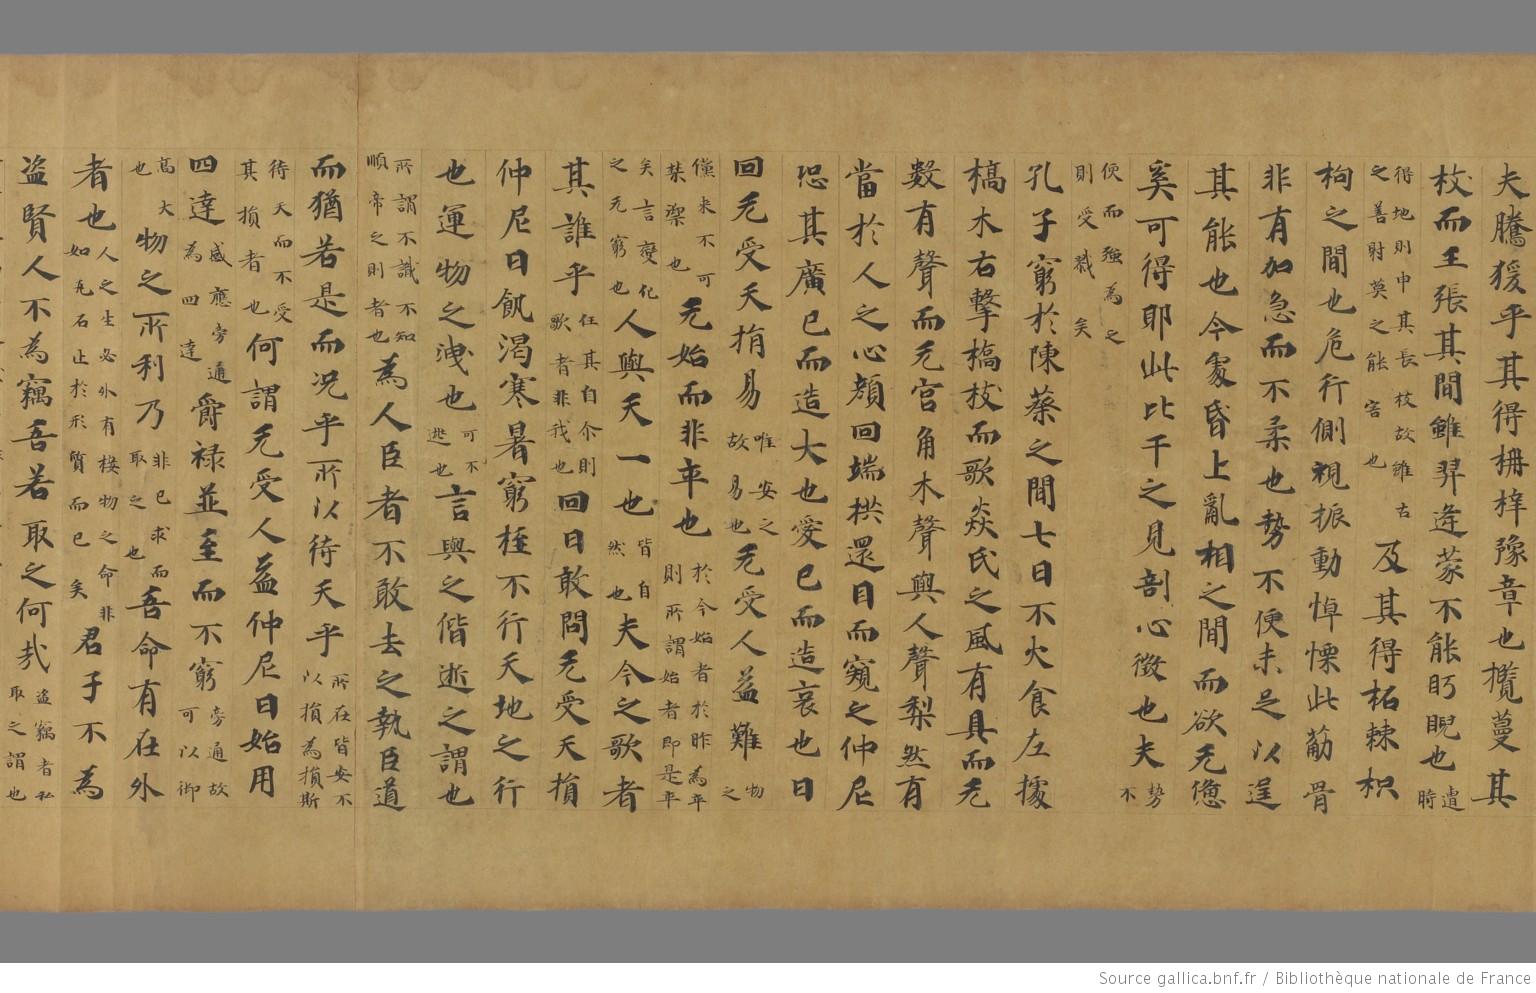 夫騰猨乎其得柟梓豫章也攬蔓其
枝而王張其間雖羿逄蒙不能眄睨也遭時
得地則申其長枝故雖古之善射莫之能害也及其得柘棘枳
枸之間也危行側視振動悼慄此筋骨
非有加急而不柔也勢不便未足以逞
其能也今處昏上亂相之間而欲无憊
奚可得耶此比干之見剖心徵也夫勢不
便而強為之則受戮矣
孔子窮於陳蔡之間七日不火食左據
槁木右擊槁枝而歌焱氏之風有具而无
數有聲而无宮角木聲與人聲梨然有
當於人之心顏回端拱還目而窺之仲尼
恐其廣己而造大也愛己而造哀也曰
回无受天損易唯安之故易也无受人益難物之
儻來不可禁禦也无始而非卒也於今始者於昨為卒則所謂始者即是卒
矣言變化之无窮也人與天一也皆自然也夫今之歌者
其誰乎任其自尒則歌者非我也回曰敢問无受天損
仲尼曰飢渴寒暑窮桎不行天地之行
也運物之洩也可不逃也言與之偕逝之謂也
所謂不識不知順帝之則者也為人臣者不敢去之執臣道
而猶若是而况乎所以待天乎所在皆安不以損為損斯
待天而不受其損者也何謂无受人益仲尼曰始用
四達感應旁通為四達爵祿並至而不窮旁通故可以御
高大也物之所利乃非己求而取之也吾命有在外
者也人之生必外有接物之命非如瓦石止於形質而已矣君子不為
盜賢人不為竊吾若取之何哉盜竊者私取之謂也